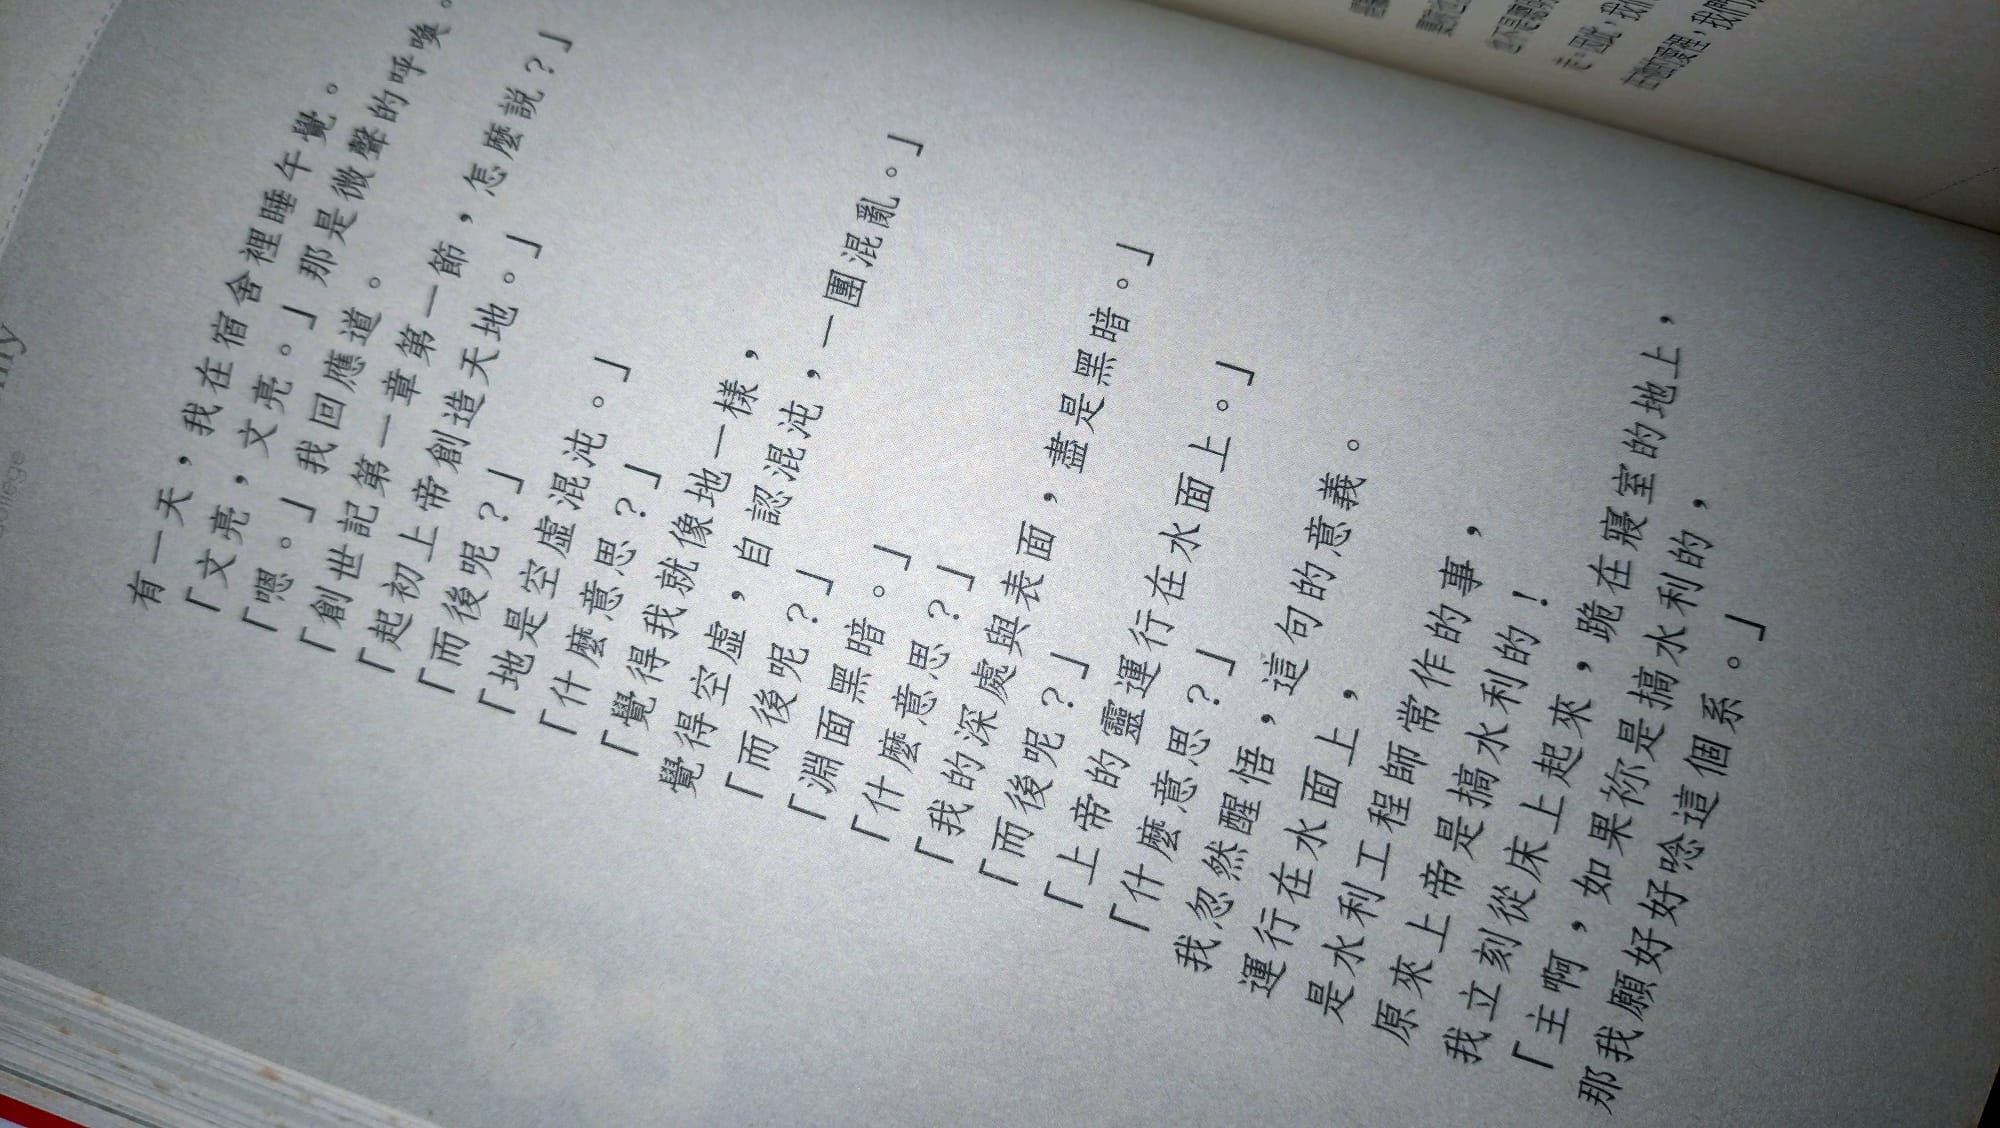 有一天，我在宿舍裡睡午覺。
「文亮，文亮。」那是微聲的呼喚。
「嗯。」我回應道。
「創世記第一章第一節，怎麼說？」
「起初上帝創造天地。」
「而後呢？」
「地是空虛混沌。」
「什麼意思？」
「覺得我就像地一樣，
覺得空虛，自認混沌，一團混亂。」
「而後呢？」
「淵面黑暗。」
「什麼意思？」
「我的深處與表面，盡是黑暗。」
「而後呢？」
「上帝的靈運行在水面上。」
「什麼意思？」
我忽然醒悟，這句的意義。
運行在水面上，
是水利工程師常作的事，
原來上帝是搞水利的！
我立刻從床上起來，跪在寢室的地上，
「主啊，如果祢是搞水利的，
那我願好好唸這個系。」